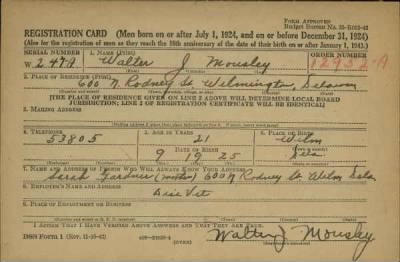 Form Approved
REGISTRATION CARD (Men born on or after July 1, 1924, and on or before December 31, 1924)
(Also for the registration of men as they reach the 18th anniversary of the date of their birth on or after January 1, 1943.)
SERIAL NUMBER 1. NAME (Print) ORDER NUMBER
W 247A Walter J Mousley A
2. PLACE OF RESIDENCE (Print)
600 N. Rodney St Wilmington, Delaware
[THE PLACE OF RESIDENCE GIVEN ON LINE 2 ABOVE WILL DETERMINE LOCAL BOARD
JURISDICTION; LINE 2 OF REGISTRATION CERTIFICATE WILL BE IDENTICAL]
3. MAILING ADDRESS
4. TELEPHONE 5. AGE IN YEARS 6. PLACE OF BIRTH
53805 21 Wilm
DATE OF BIRTH
9 19 25 Dela
7. NAME AND ADDRESS OF PERSON WHO WILL ALWAYS KNOW YOUR ADDRESS
Gardner (mother) 600 N Rodney St. Wilm Dela
8. EMPLOYER'S NAME AND ADDRESS
Disc Vet
9. PLACE OF EMPLOYMENT OR BUSINESS
I AFFIRM THAT I HAVE VERIFIED ABOVE ANSWERS AND THAT THEY ARE TRUE.
DSS Form 1 (OVER) Walter J Mousley